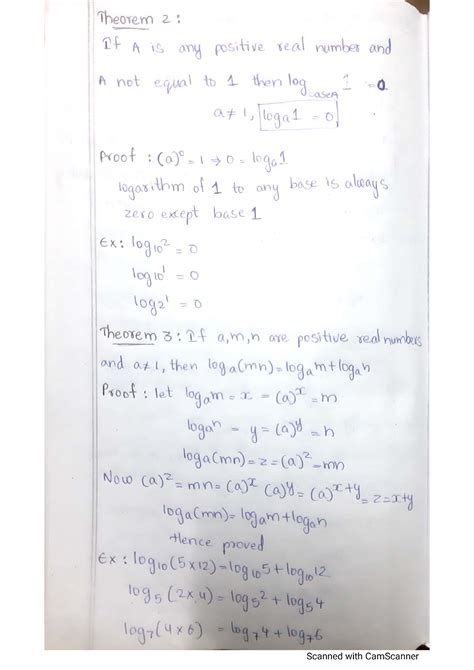 Theorem 2:
If A is any positive real number and
A not equal to 1 then log baseA 1 = 0
a≠1, loga1 = 0
Proof : (a)⁰ = 1 ⇒ 0 = loga1
logarithm of 1 to any base is always
zero except base 1
Ex: log10² = 0
log10¹ = 0
log2¹ = 0
Theorem 3: If a,m,n are positive real numbers
and a≠1, then loga(mn)=logam+logan
Proof : let logam = x = (a)ˣ = m
logan = y = (a)ʸ = n
loga(mn) = z = (a)² = mn
Now (a)² = mn = (a)ˣ (a)ʸ = (a)ˣ⁺ʸ = z = x+y
loga(mn) = logam+logan
Hence proved
Ex: log10(5x12)=log105+log1012
log5(2x4) = log5²+log54
log7(4x6) = log74+log76
Scanned with CamScanner